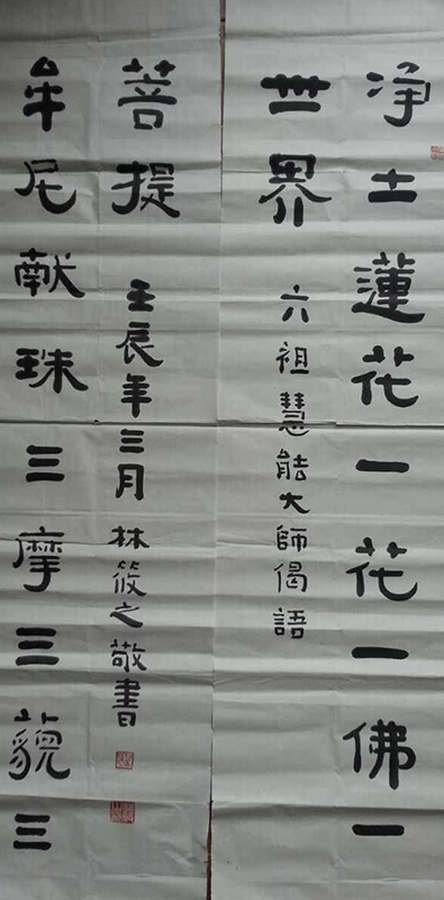 净土蓮花一花一佛一
世界
六祖慧能大師偈語
牟尼献珠三摩三藐三
菩提
壬辰年三月 林筱之敬書